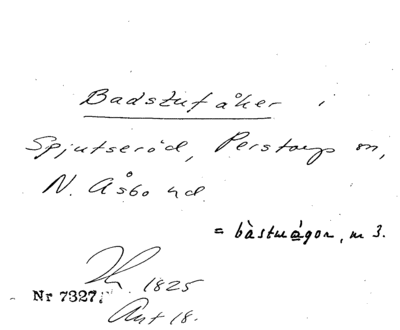 Badstufåker i
Spjutseröd, Perstorps sn,
N. Åsbo hd.
= bàstuågor, m 3.
1825
Nr 7327.
Akt 18.